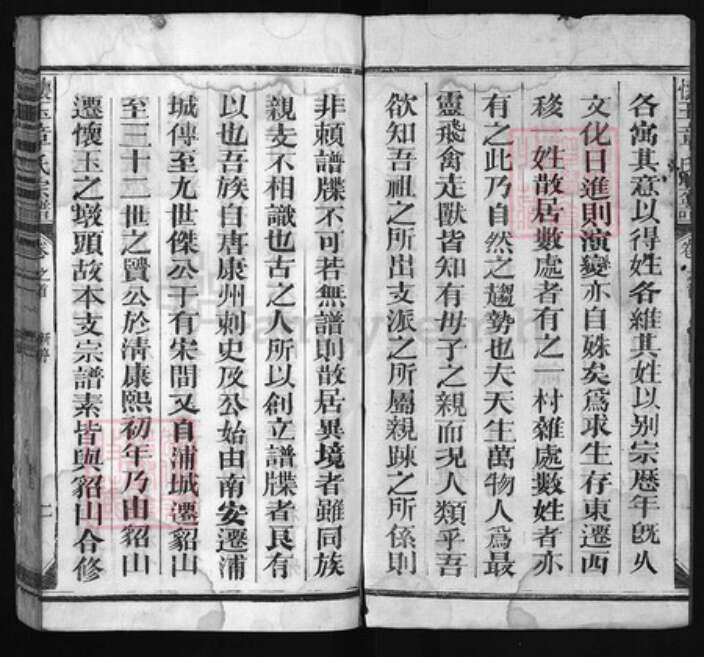 各寓其意以得姓各維其姓以别宗歴年旣乆
文化日進則演變亦自姝矣爲求生存東遷西
移 姓散居數處者有之一村雜處數姓者亦
有之此乃自然之趨勢也夫天生萬物人爲最
靈飛禽走獸皆知有母子之親而况人類乎吾
欲知吾祖之所出支派之所屬親踈之所係則
非賴譜牒不可若無譜則散居異境者雖同族
親支不相識也古之人所以創立譜牒者良有
以也吾族自唐康州刺史及公始由南安遷浦
城傳至九世傑公于有宋間又自浦城遷貂山
至三十二世之贒公於淸康熙初年乃由貂山
遷懷玉之墩頭故本支宗譜素皆與貂山合修
懷玉章氏宗譜
卷之首
二